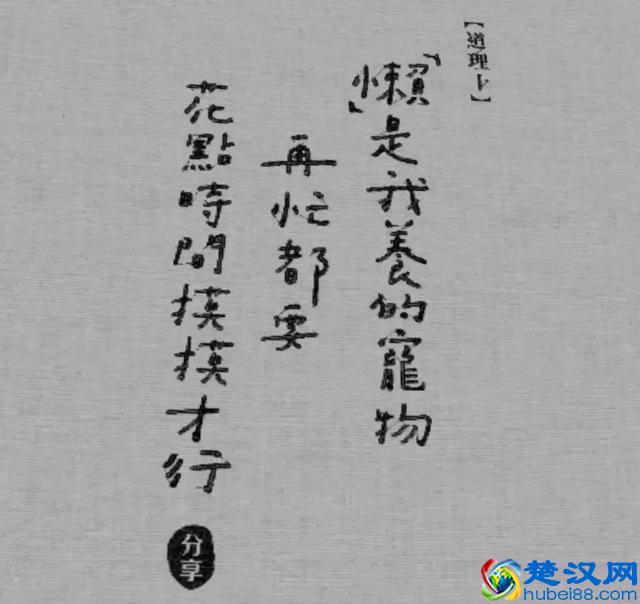 【道理卜】
「懶」是我養的寵物
再忙都要
花點時間摸摸才行
分享
楚汉网
hubei88.com